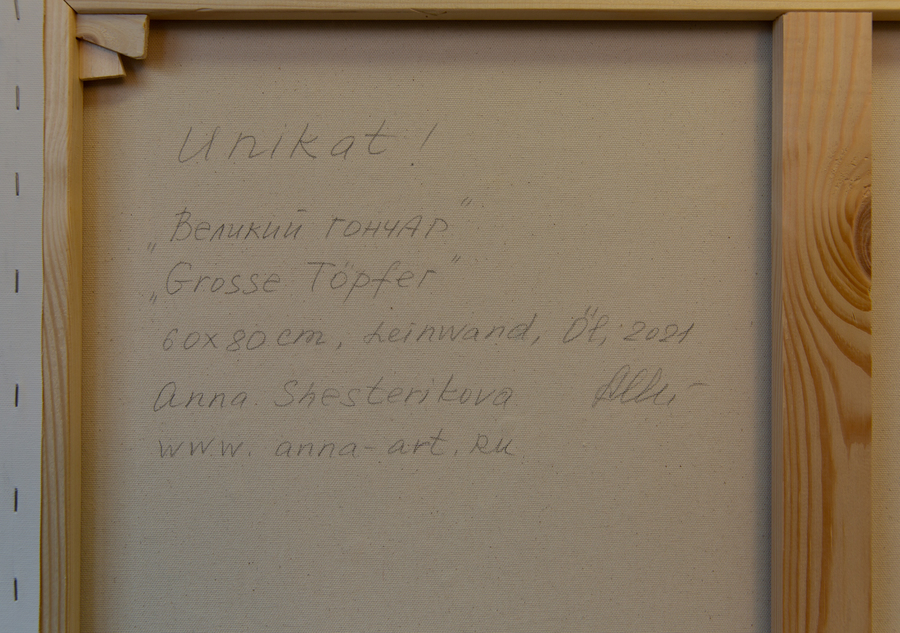 Unikat!
„Великий гончар"
„Grosse Töpfer"
60x80 cm, Leinwand, Öl, 2021
Anna Shesterikova
www.anna-art.ru